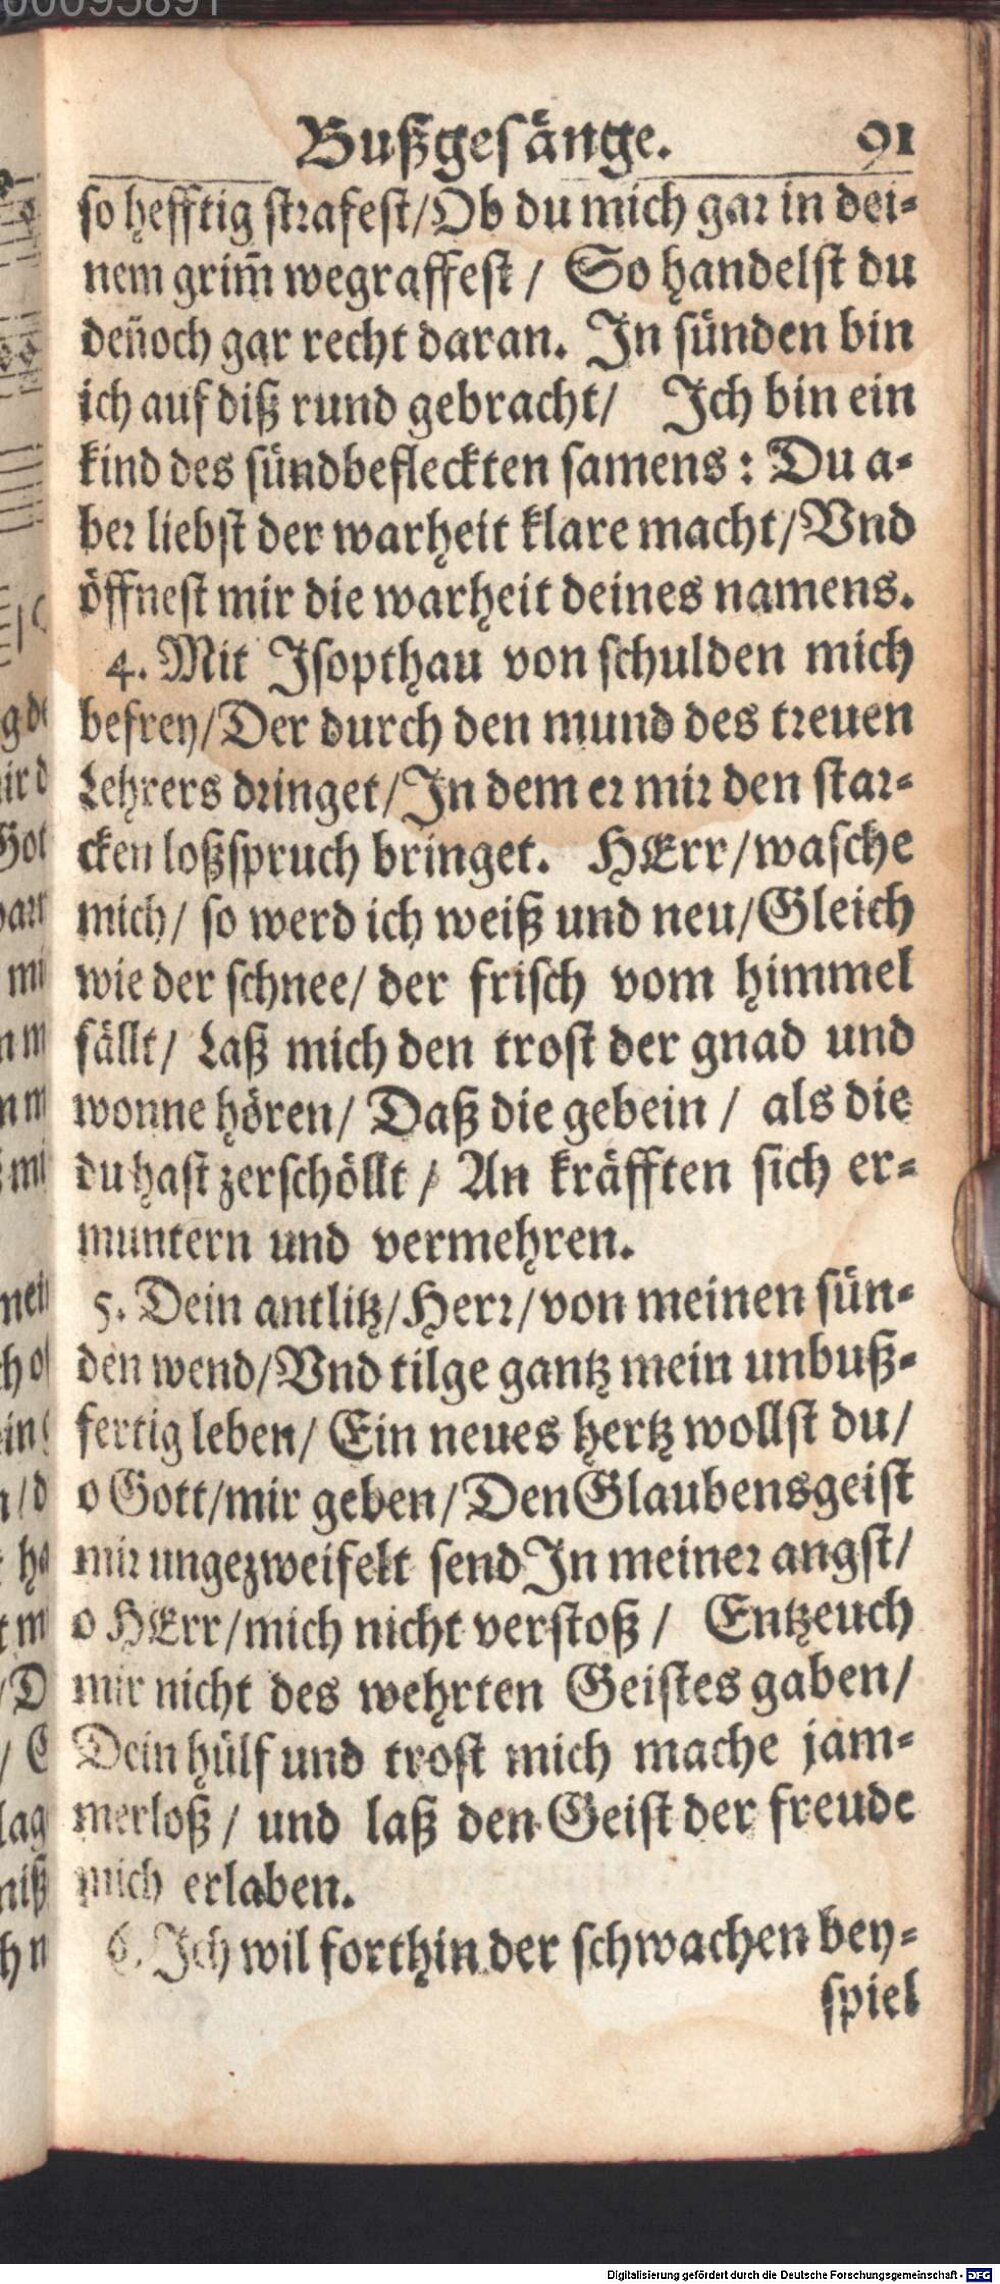 Bußgesänge. 91
so hefftig strafest/Ob du mich gar in dei-
nem grim̃ wegraffest / So handelst du
deñoch gar recht daran. In sünden bin
ich auf diß rund gebracht/ Ich bin ein
kind des sündbefleckten samens: Du a-
ber liebst der warheit klare macht/Vnd
öffnest mir die warheit deines namens.
4. Mit Isopthau von schulden mich
befrey/Der durch den mund des treuen
Lehrers dringet/In dem er mir den star-
cken loßspruch bringet. HErr/wasche
mich/ so werd ich weiß und neu/Gleich
wie der schnee/ der frisch vom himmel
fällt/ Laß mich den trost der gnad und
wonne hören/ Daß die gebein / als die
du hast zerschöllt / An kräfften sich er-
muntern und vermehren.
5. Dein antlitz/Herr/von meinen sün-
den wend/Vnd tilge gantz mein unbuß-
fertig leben/ Ein neues hertz wollst du/
o Gott/mir geben/Den Glaubensgeist
mir ungezweifelt send In meiner angst/
o HErr/mich nicht verstoß / Entzeuch
mir nicht des wehrten Geistes gaben/
Dein hülf und trost mich mache jam-
merloß / und laß den Geist der freude
mich erlaben.
6. Ich wil forthin der schwachen bey-
spiel
Digitalisierung gefördert durch die Deutsche Forschungsgemeinschaft - DFG